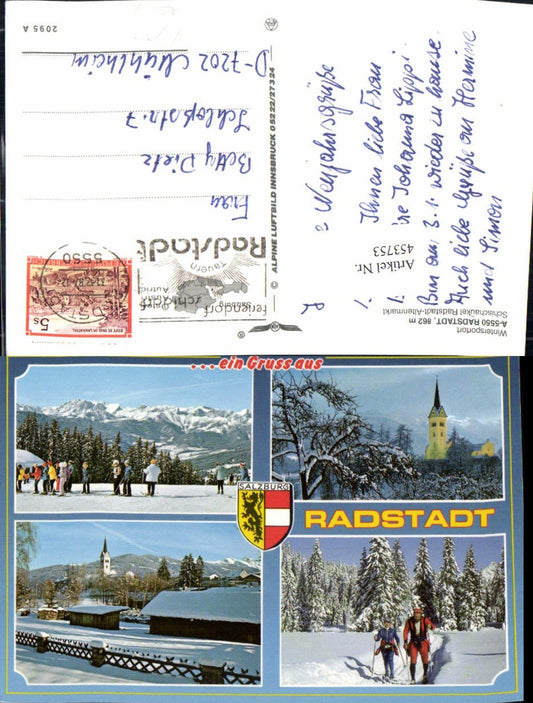 Wintersportort
A-5550 RADSTADT, 862 m
Schischaukel Radstadt-Altenmarkt
Neujahrsgrüße
Ihnen liebe Frau
Ihre Johanna Lippi.
Bin am 3.1. wieder zu hause.
Auch liebe Grüße an Hermine
und Simon
Artikel Nr.
453753
© ALPINE LUFTBILD INNSBRUCK 0 52 22 / 27 3 24
2095 A
5550
Radstadt
Tauern
Salzburg
Feriendorf
5s
Frau
Betty Dietz
Schloßstr. 7
D-7202 Mühlheim
...ein Gruss aus
SALZBURG
RADSTADT